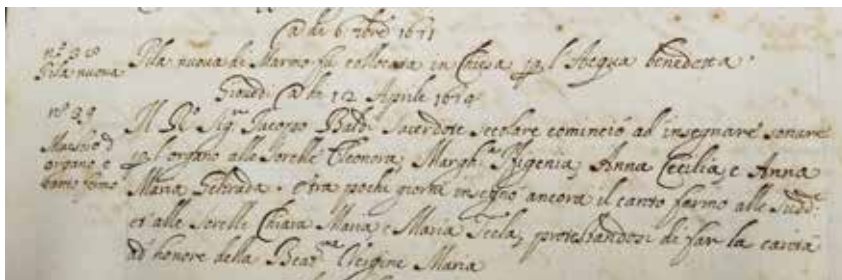 A dì 6 xbre 1671
n.° 98
Pila nuova
Pila nuova di Marmo fù collocata in Chiesa p. l'Acqua benedetta.
Giovedì A dì 12 Aprile 1679
n.° 99
organo e
canto fermo
Il R.° Sig.re Jacopo Baldi Sacerdote secolare cominciò ad insegnare sonare
p. l'organo alle Sorelle Eleonora, Margh.ta Ifigenia, Anna Cecilia, e Anna
Maria Geltrada. e tra pochi giorni insegnò ancora il canto fermo alle sudd.e
et alle Sorelle Chiara Maria e Maria Tecla, protestandosi di far la carità
ad honore della Beat.ma Vergine Maria